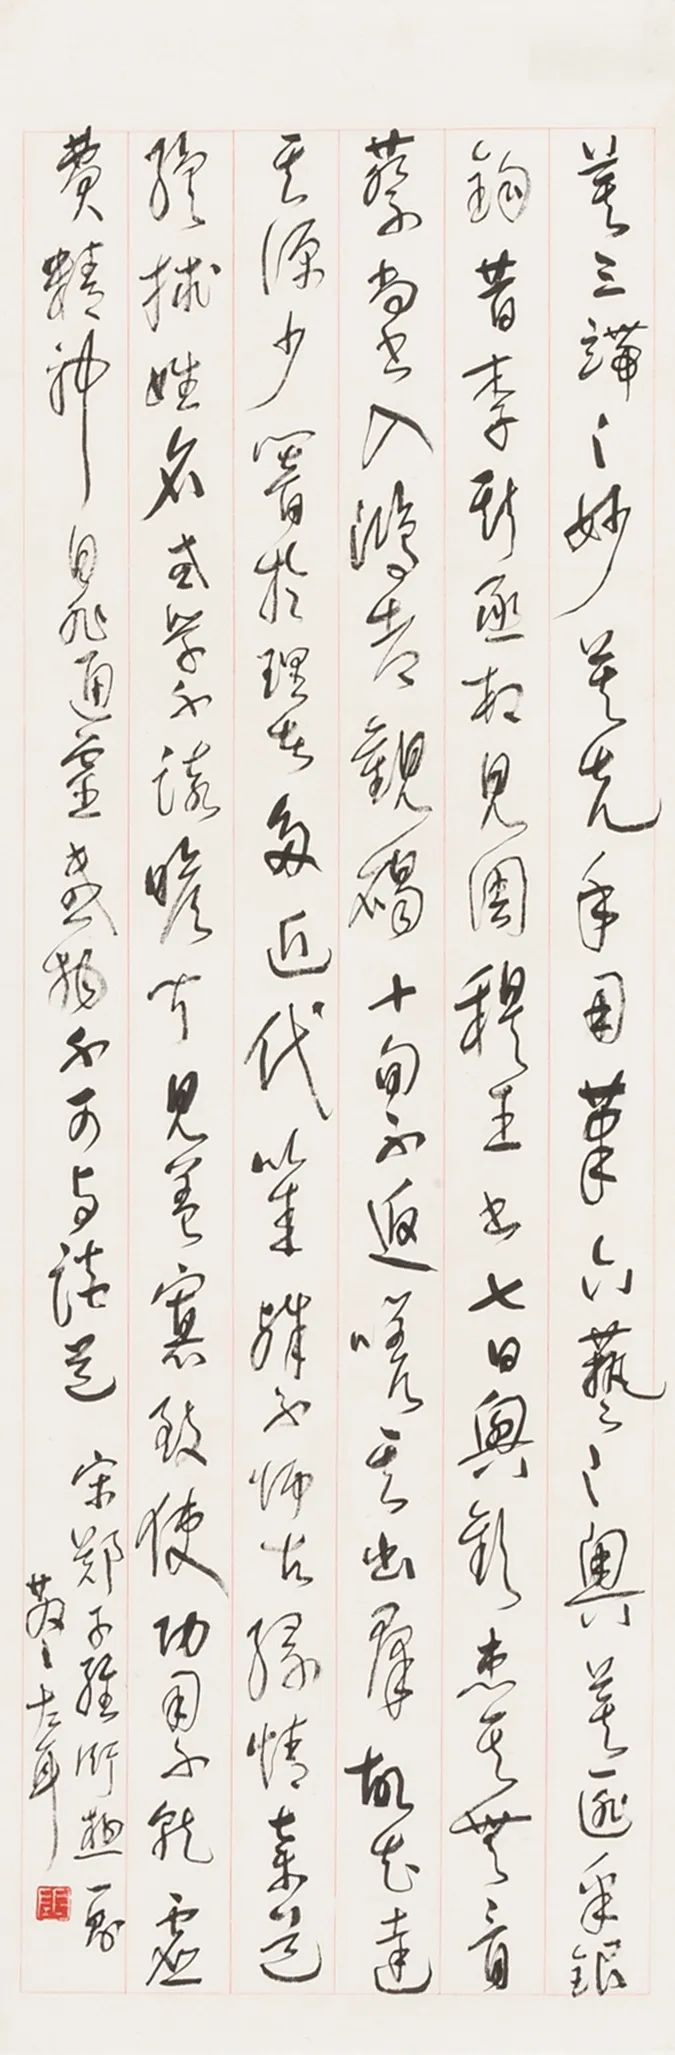 莫三端之妙莫先乎用筆六藝之奧莫匪乎銀
鉤昔李斯丞相見周穆王書七日興歎患其無骨
蔡尚書入鴻都觀碣十旬不返嗟其出群故知達
其源少闇於理者多近代以來殊不師古緣情棄道
纔姓名或學不該瞻聞見蓋寡致使功用不就虛
費精神自非通靈感物不可與談道
宋鄭子經衍極一則